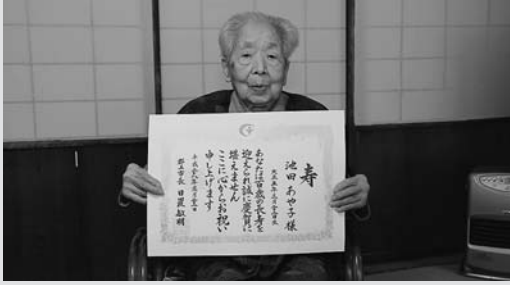 寿
池田 あや子 様
あなたは百歳の長寿を
迎えられ誠に慶賀に
堪えません
ここに心からお祝い
申し上げます
郡上市長 日置敏明